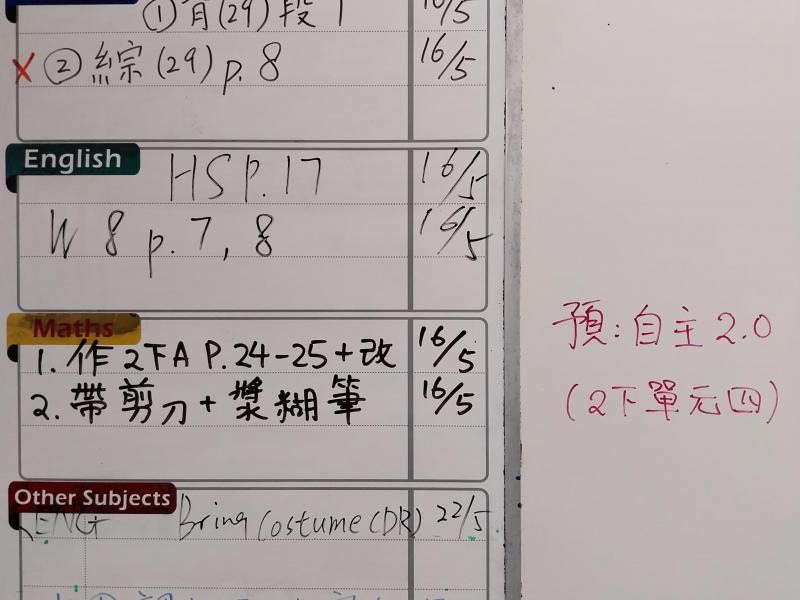 ①背(29)段1 16/5
× ② 綜(29) p.8 16/5
English
HS P.17 16/5
W 8 p.7, 8 16/5
Maths
1. 作 2下A P.24-25+改 16/5
2. 帶剪刀+漿糊筆 16/5
Other Subjects
ENG Bring Costume (DR) 22/5
預:自主2.0
(2下單元四)